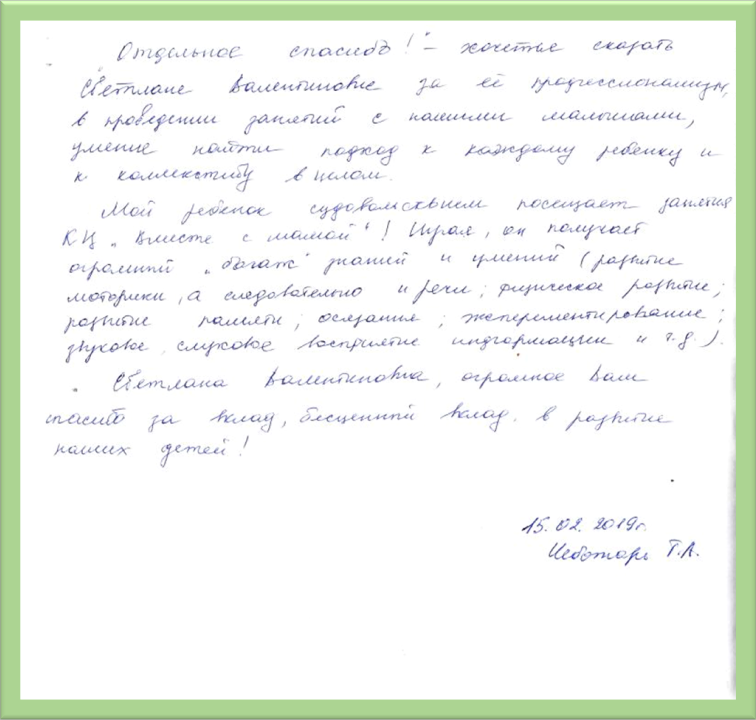 „Отдельное спасибо!" – хочется сказать
Светлане Валентиновне за её профессионализм,
в проведении занятий с нашими малышами,
умение найти подход к каждому ребенку и
к коллективу в целом.
Мой ребенок с удовольствием посещает занятия
КЦ „Вместе с мамой"! Играя, он получает
огромный „багаж" знаний и умений (развитие
моторики, а следовательно и речи; физическое развитие;
развитие памяти; осязания; экспериментирование;
звуковое, слуховое восприятие информации и т.д.).
Светлана Валентиновна, огромное Вам
спасибо за вклад, бесценный вклад в развитие
наших детей!
15.02.2019г.
Чеботарь Т.А.